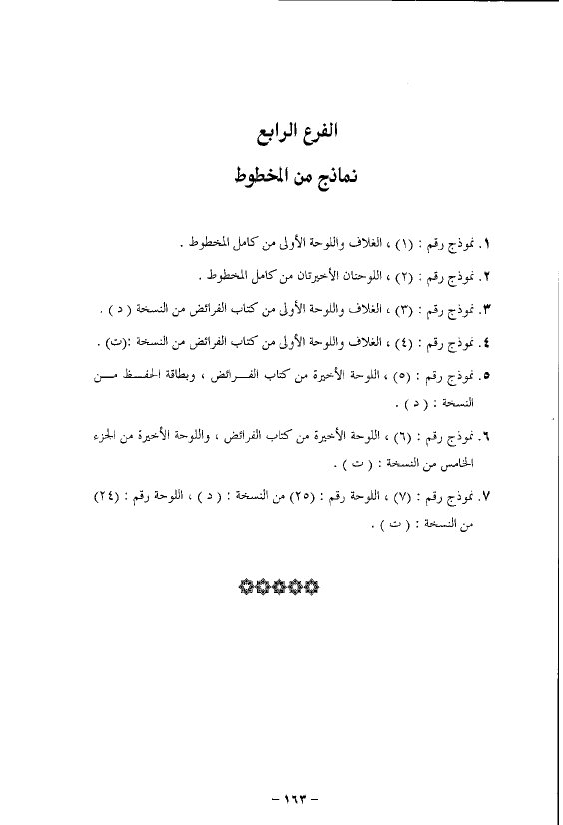 الفرع الرابع
نماذج من المخطوط
١. نموذج رقم : (١) ، الغلاف واللوحة الأولى من كامل المخطوط .
٢. نموذج رقم : (٢) ، اللوحتان الأخيرتان من كامل المخطوط .
٣. نموذج رقم : (٣) ، الغلاف واللوحة الأولى من كتاب الفرائض من النسخة ( د ) .
٤. نموذج رقم : (٤) ، الغلاف واللوحة الأولى من كتاب الفرائض من النسخة :(ت) .
٥. نموذج رقم : (٥) ، اللوحة الأخيرة من كتاب الفـــرائض ، وبطاقة الحفـــظ مـــن
النسخة : ( د ) .
٦. نموذج رقم : (٦) ، اللوحة الأخيرة من كتاب الفرائض ، واللوحة الأخيرة من الجزء
الخامس من النسخة : ( ت ) .
٧. نموذج رقم : (٧) ، اللوحة رقم : (٢٥) من النسخة : ( د ) ، اللوحة رقم : (٢٤)
من النسخة : ( ت ) .
– ١٦٣ –